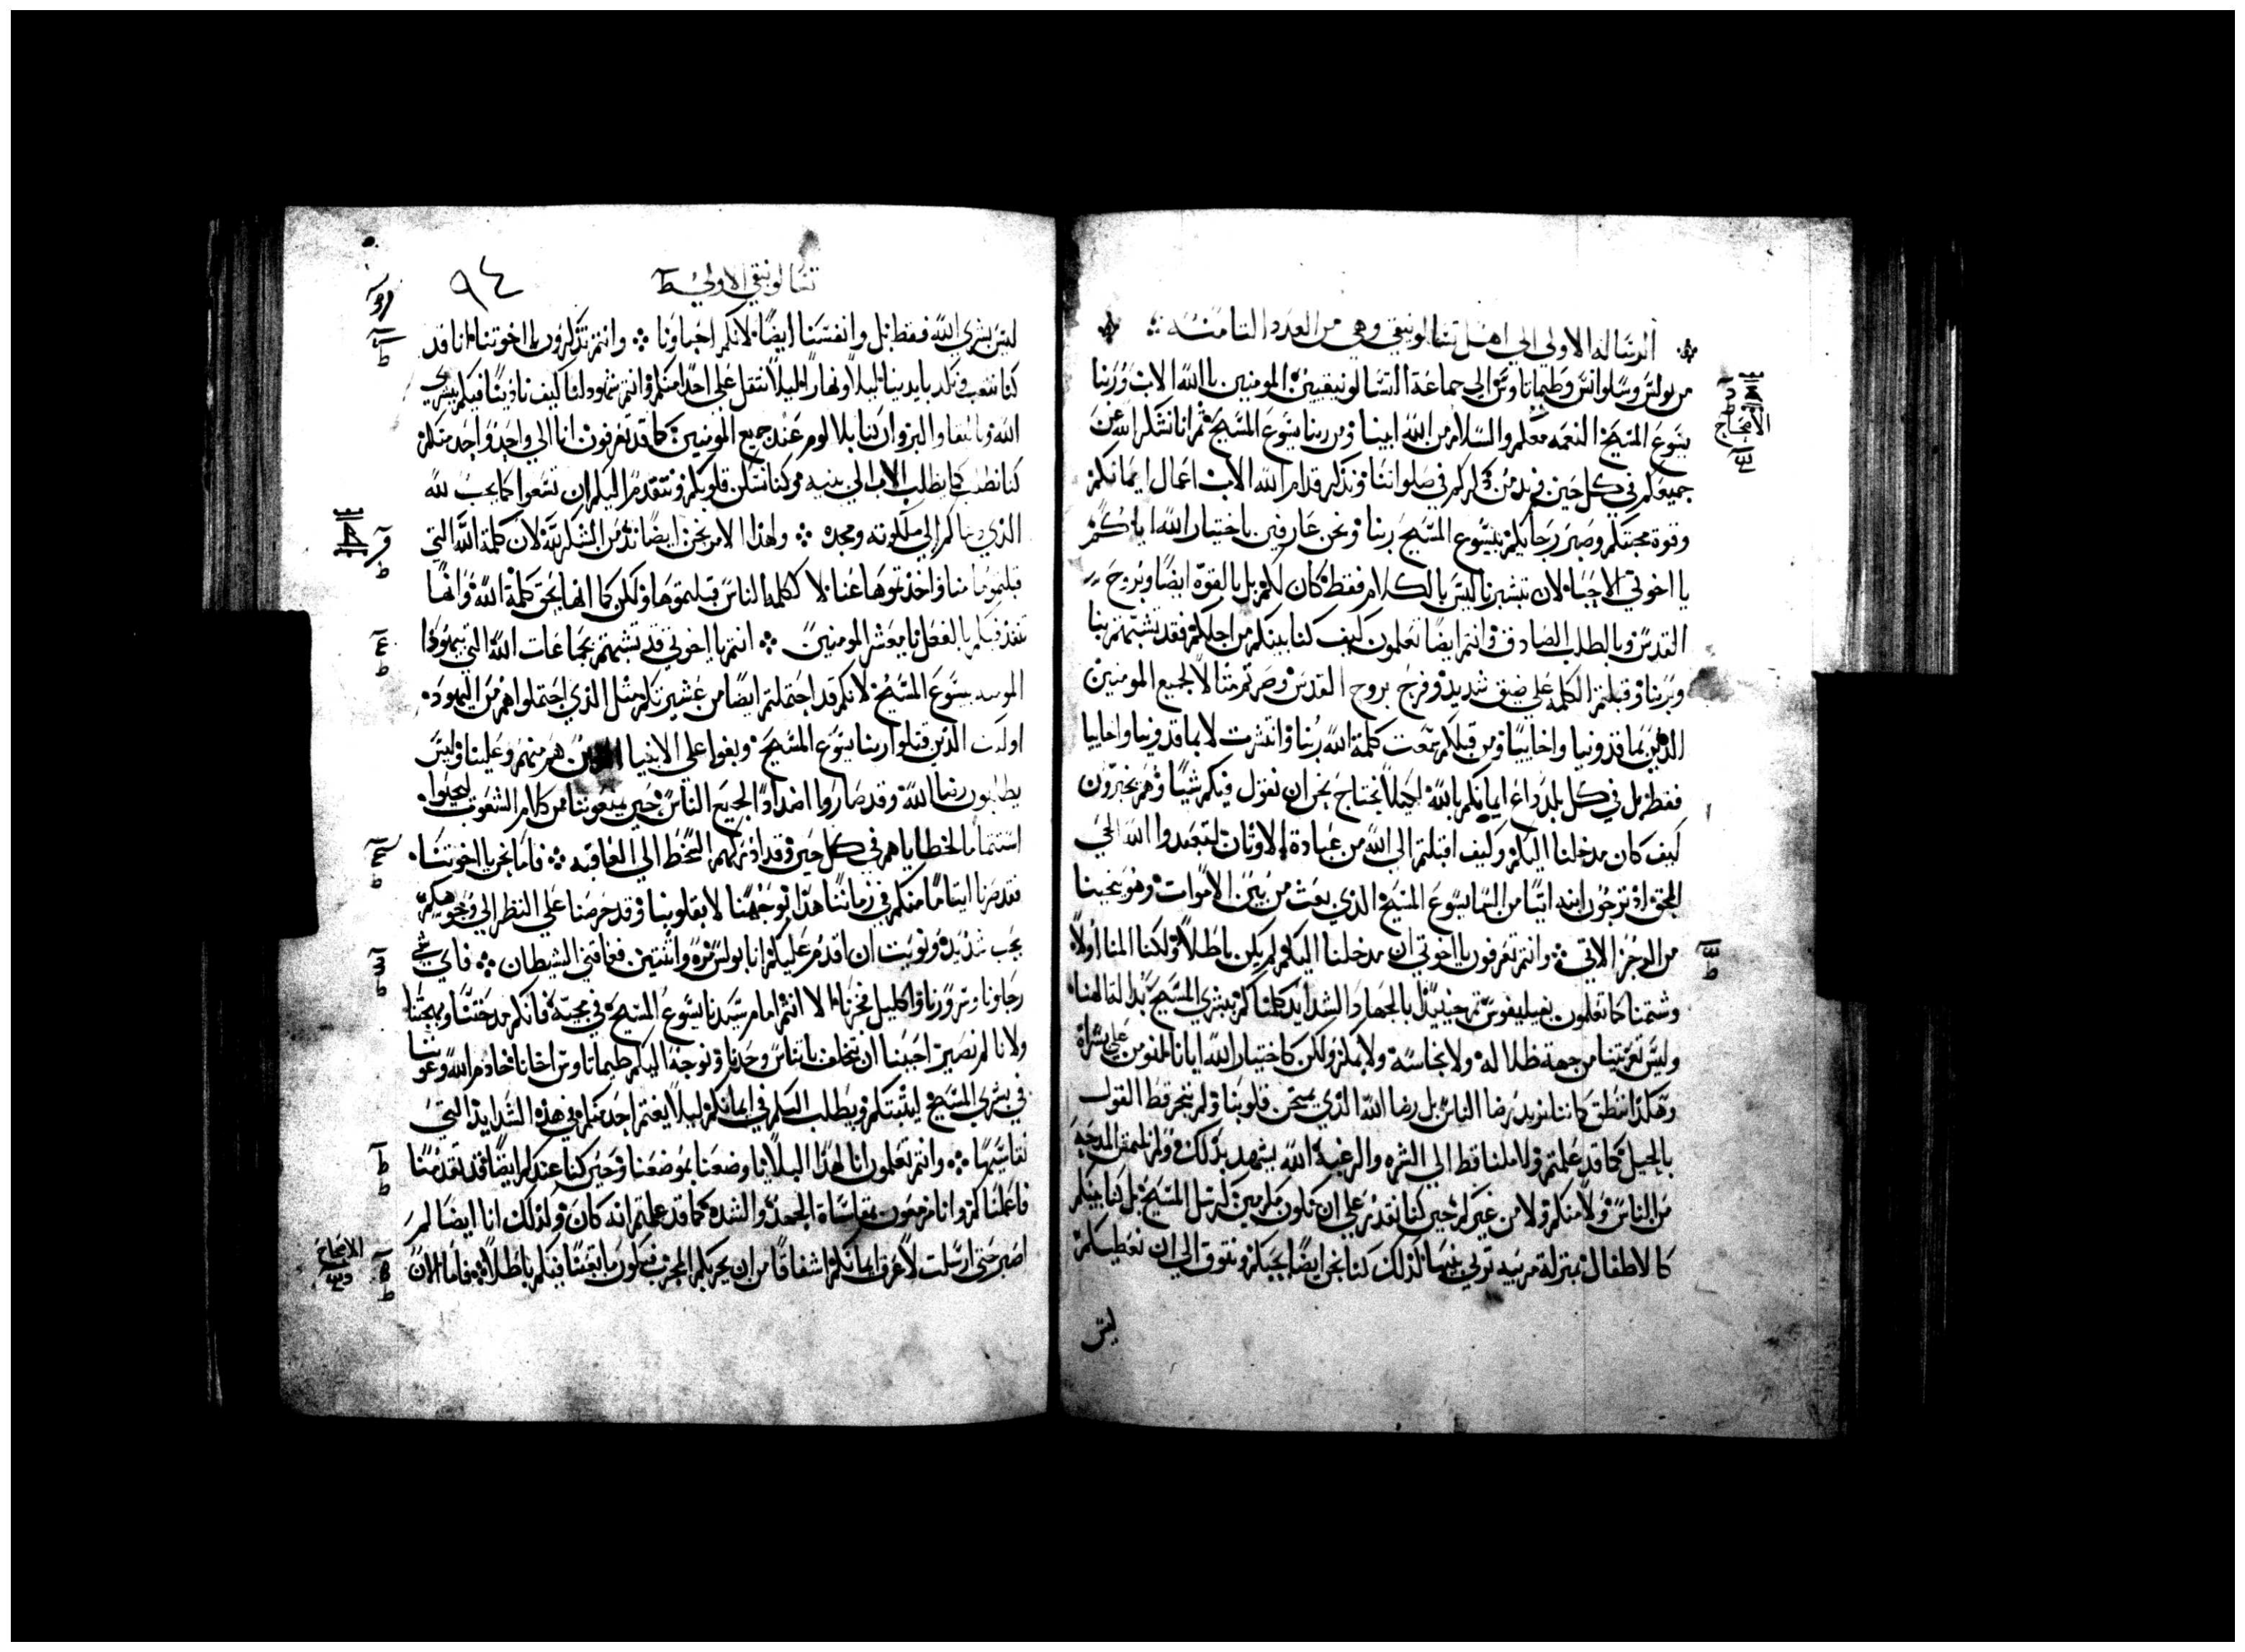 الرساله الاولى الي اهل تسالونيقي وهي من العدد الثامنه
من بولس وسلوانس وطيماتاوس الي جماعة التسالونيقيين المومنين بالله الاب وربنا
يسوع المسيح النعمه معكم والسلام من الله ابينا ومن ربنا يسوع المسيح ثم انا نشكر الله عن
جميعكم في كل حين ونديمن ذكركم في صلواتنا ونذكر قدام الله الاب اعمال ايمانكم
وقوة محبتكم وصبر رجايكم بيسوع المسيح ربنا ونحن عارفين باختيار الله اياكم
يا اخوتي الاحبا لان تبشيرنا ليس بالكلام فقط كان لكم بل بالقوه ايضا وبروح
القدس وبالطلب الصادق وانتم ايضا تعلمون كيف كنا بينكم من اجلكم فقد تشبهتم بنا
وبربنا وقبلتم الكلمه علي ضيق شديد وفرح بروح القدس وصرتم مثالا لجميع المومنين
الذين بماقدونيا واخاييا ومن قبلكم سمعت كلمة الله ربنا وانتشرت لا بماقدونيا واخاييا
فقط بل في كل بلد ذاع ايمانكم بالله لكيلا نحتاج نحن ان نقول فيكم شيا وهم يخبرون
كيف كان مدخلنا اليكم وكيف اقبلتم الي الله من عبادة الاوثان لتعبدوا الله الحي
المحق اذ ترجون ابنه اتيا من السما يسوع المسيح الذي بعث من بين الاموات وهو ينجينا
من الرجز الاتي وانتم تعرفون يا اخوتي ان مدخلنا اليكم لم يكن باطلا ولكنا المنا اولا
وشتمنا كما تعلمون بفيليفوس ثم حينيذ بالجهاد الشديد كلمناكم ببشري المسيح بدالة الهنا
وليس تعزيتنا من جهة ظلاله ولا نجاسه ولا بمكر ولكن كاختيار الله ايانا لنومن علي بشراه
وهكذا ننطق كاننا لا نريد رضا الناس بل رضا الله الذي يمتحن قلوبنا ولم نتجر قط القول
بالحيل كما قد علمتم ولا ملنا قط الي الشره والرغبه الله يشهد بذلك ولم نلتمس المدحه
من الناس ولا منكم ولا من غيركم حين كنا نقدر علي ان نكون مكرمين كرسل المسيح بل كنا بينكم
كالاطفال بمنزلة مربيه تربي بنيها كذلك كنا نحن ايضا نحبكم ونتوق الي ان نعطيكم
ليس
تسالونيقي الاولي
٩٤
ليس بشري الله فقط بل وانفسنا ايضا لانكم احباونا وانتم تذكرون يا اخوتنا انا قد
كنا نتعب ونكد بايدينا ليلا ونهارا ليلا نثقل علي احد منكم وانتم شهود لنا كيف نادينا فيكم ببشري
الله وبالنقا والبر وان بنا بلا لوم عند جميع المومنين كما قد تعرفون انا الي واحد واحد منكم
كنا نطلب كما يطلب الاب الي بنيه وكنا نسكن قلوبكم ونتقدم اليكم ان تسعوا كما يجب لله
الذي دعاكم الي ملكوته ومجده ولهذا الامر نحن ايضا نديمن الشكر لله لان كلمة الله التي
قبلتموها منا واخذتموها عنا لا ككلمة الناس قبلتموها ولكن كما انها بحق كلمة الله وانها
تنفذ فيكم بالفعل يا معشر المومنين انتم يا اخوتي قد تشبهتم بجماعات الله التي بيهوذا
المومنه بيسوع المسيح لانكم قد احتملتم ايضا من عشيرتكم مثل الذي احتملوا هم من اليهود
اولايك الذين قتلوا ربنا يسوع المسيح وبغوا علي الانبيا الذين هم منهم وعلينا وليس
يطلبون رضا الله وقد صاروا اضدادا لجميع الناس حين يمنعوننا من كلام الشعوب ليحيوا
استتماما لخطاياهم في كل حين وقد ادركهم السخط الي العاقبه فاما نحن يا اخوتنا
فقد صرنا ايتاما منكم في زماننا هذا بوجهنا لا بقلوبنا وقد حرصنا علي النظر الي وجوهكم
بحب شديد ونويت ان اقدم عليكم انا بولس مره واثنتين فعاقني الشيطان فاي شي
رجاونا وسرورنا واكليل فخرنا الا انتم امام سيدنا يسوع المسيح في مجيه فانكم مدحتنا وبهجتنا
ولانا لم نصبر احببنا ان نتخلف باثناس وحدنا ونوجه اليكم طيماتاوس اخانا خادم الله وعوننا
في بشري المسيح ليثبتكم ويطلب اليكم في ايمانكم ليلا يغتم احد منكم في هذه الشدايد التي
نقاسيها وانتم تعلمون انا لهذا البلايا وضعنا بموضعنا وحين كنا عندكم ايضا قد تقدمنا
فاعلمناكم وانا مزمعون بمقاساة الجهد والشده كما قد علمتم انه كان ولذلك انا ايضا لم
اصبر حتي ارسلت لاعرف ايمانكم اشفاقا من ان يجربكم المجرب فيكون ما تعبنا فيكم باطلا فاما الان
الاصحاح